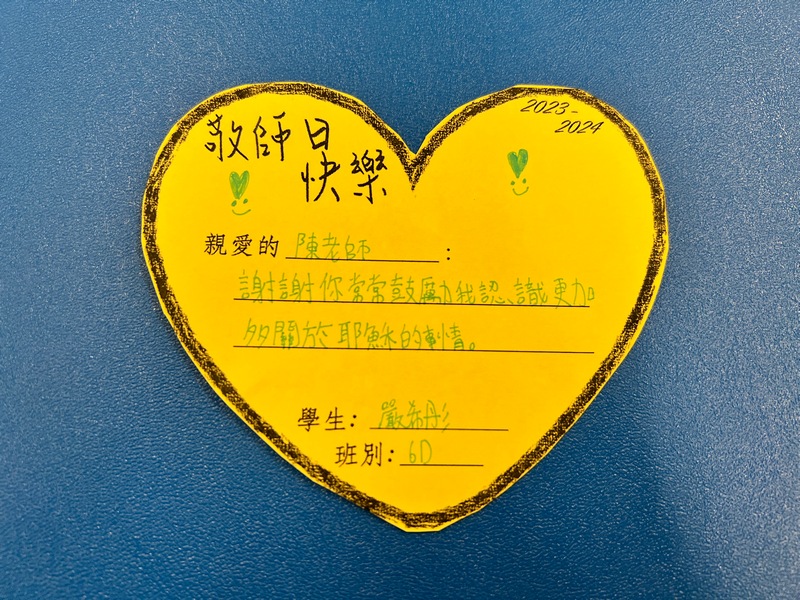 2023-
2024
敬師日
快樂
親愛的 陳老師 :
謝謝你常常鼓勵我認識更加
多關於耶穌的事情。
學生: 嚴希彤
班別: 6D